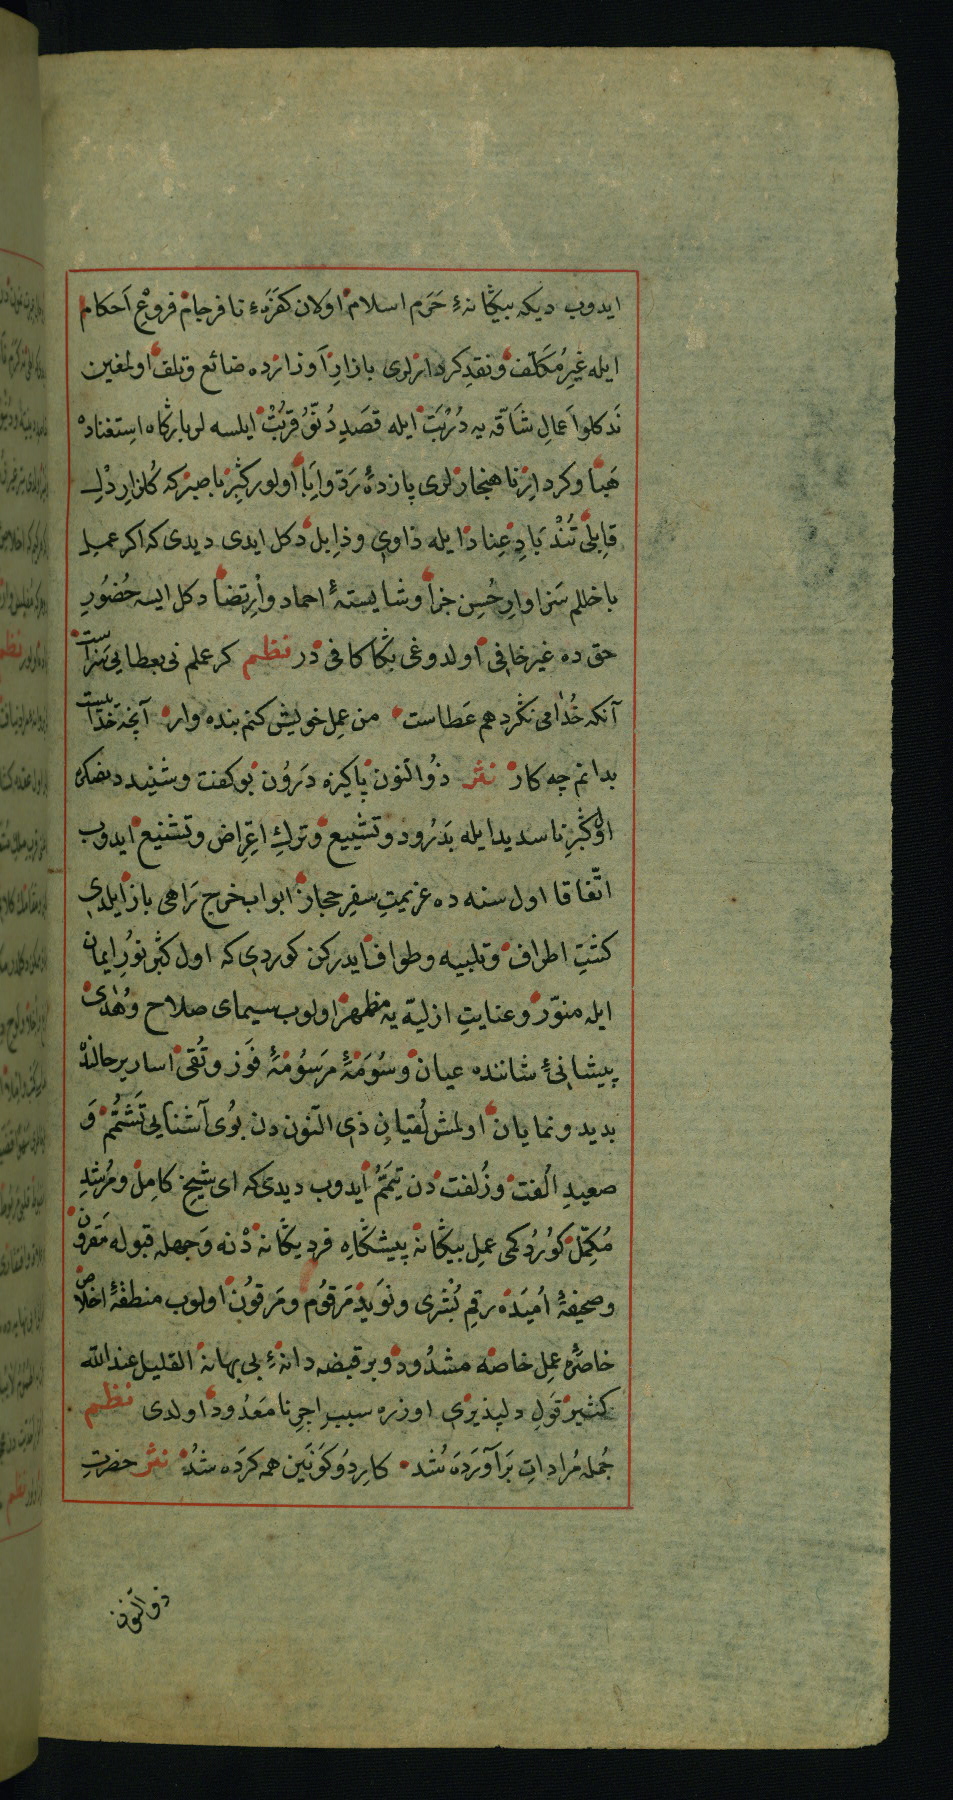 ایدوب دیکه بیکانهٔ حَرَم اسلام اولان کفَرَهٔ نافرجام فروعِ اَحکام
ایله غیرِ مُکَلَّف و نقدِ کردارلری بازارِ آوذارده ضائع و تلف اولمغین
نَدکلو اَعمالِ شَاقّه یه دُرْبَت ایله قصَدِ دُنُوّ قُربَت ایلسه لر بارکاه استغناده
هَبا و کردارِ ناهنجارلری پازدهٔ رَدّ و اِبَا اولور کبْرِ ناصبر که کُلزارِ دلِ
قابلی تُنْد بَادِ عِناد ایله ذاوی و ذابل دکل ایدی دیدی که اکر عمل
باخللم سَزاوارِ حُسنِ جزا و شایستهٔ احماد و اِرتضا دکل ایسه حضُورِ
حق ده غیر خافی اولدوغی بکا کافی در نظم کر عملم نی بعطایی سزاست
آنکه خُدا می نکَرد هم عَطاست من عمِل خویش کنم بنده وار آنچه خُداییست
بدانم چه کار نثر ذُو النّون پاکیزه دَرُون بو کفت و شنید دنصکره
اول کبْرِ ناسدید ایله بَدرُود و تشییع و ترك اعِراض و تشنیع ایدوب
اتّفاقا اول سنه ده عزیمتِ سفرِ حجاز ابواب خرج رَاهی باز ایلدی
کشتِ اطراف و تلبیه و طواف ایدرکن کوردی که اول کبر نورِ ایمان
ایله منوّر و عنایتِ ازلیّه یه مظهر اولوب سیمای صلاح و هُدٰی
پیشانیٔ شاننده عیان و سُومَهٔ مَرسُومَهٔ فَوز و تُقی اسار یر حالنده
بدید و نمایان اولمش لُقیان ذی النّون دن بُوی آشنایی تَشمُّم و
صعیدِ اُلفت و زُلفت دن تیمّم ایدوب دیدی که ای شیخ کامل و مُرشدِ
مُکمّل کوردُکمی عملِ بیکانه پیشکاه فرد یکانه دْنه وَجهله قبوله مَقرون
و صحیفهٔ اُمیده رقم بُشری و نَوید مَرقُوم و مَرقُون اولوب منطقهٔ اخلاص
خاصرهٔ عمل خاصّه مشدُود و بر قبضه دانهٔ بی بهانه القلیل عند اللّٰه
کثیر قول دلپذیری اوزره سبب اجرِ نامَعدُود اولدی نظم
جُمله مُراداتِ بَرآوَردَه شُد کارِ دُو کَونَین همه کرده شُد نثر حضرتِ
ذو النّون